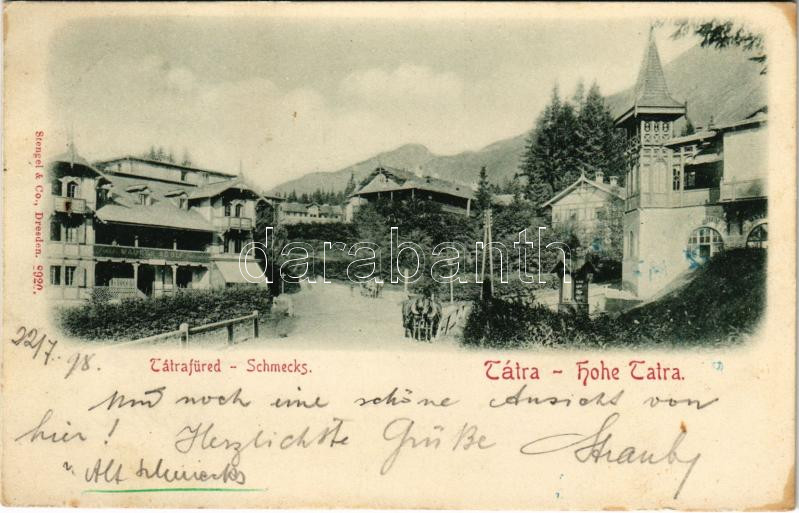 Stengel & Co., Dresden. 2920.
darabanth.com
Tátrafüred - Schmecks.
Tátra - Hohe Tatra.
22/7 98.
Und noch eine schöne Ansicht von
hier! Herzlichste Grüße Strauby
Alt Schmecks